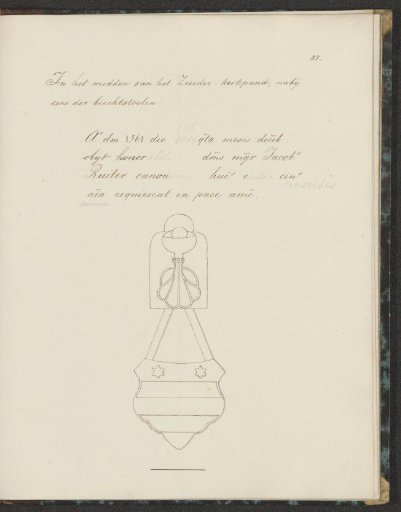 85.
In het midden van het Zuider-kerkpand, naby
eens der biechtstoelen
A° dm 1361 die qta mesis deceb
obyt honor dons mgr Jacob
Ruiter canon hui' e ein'
aia requiescat in pace ame.